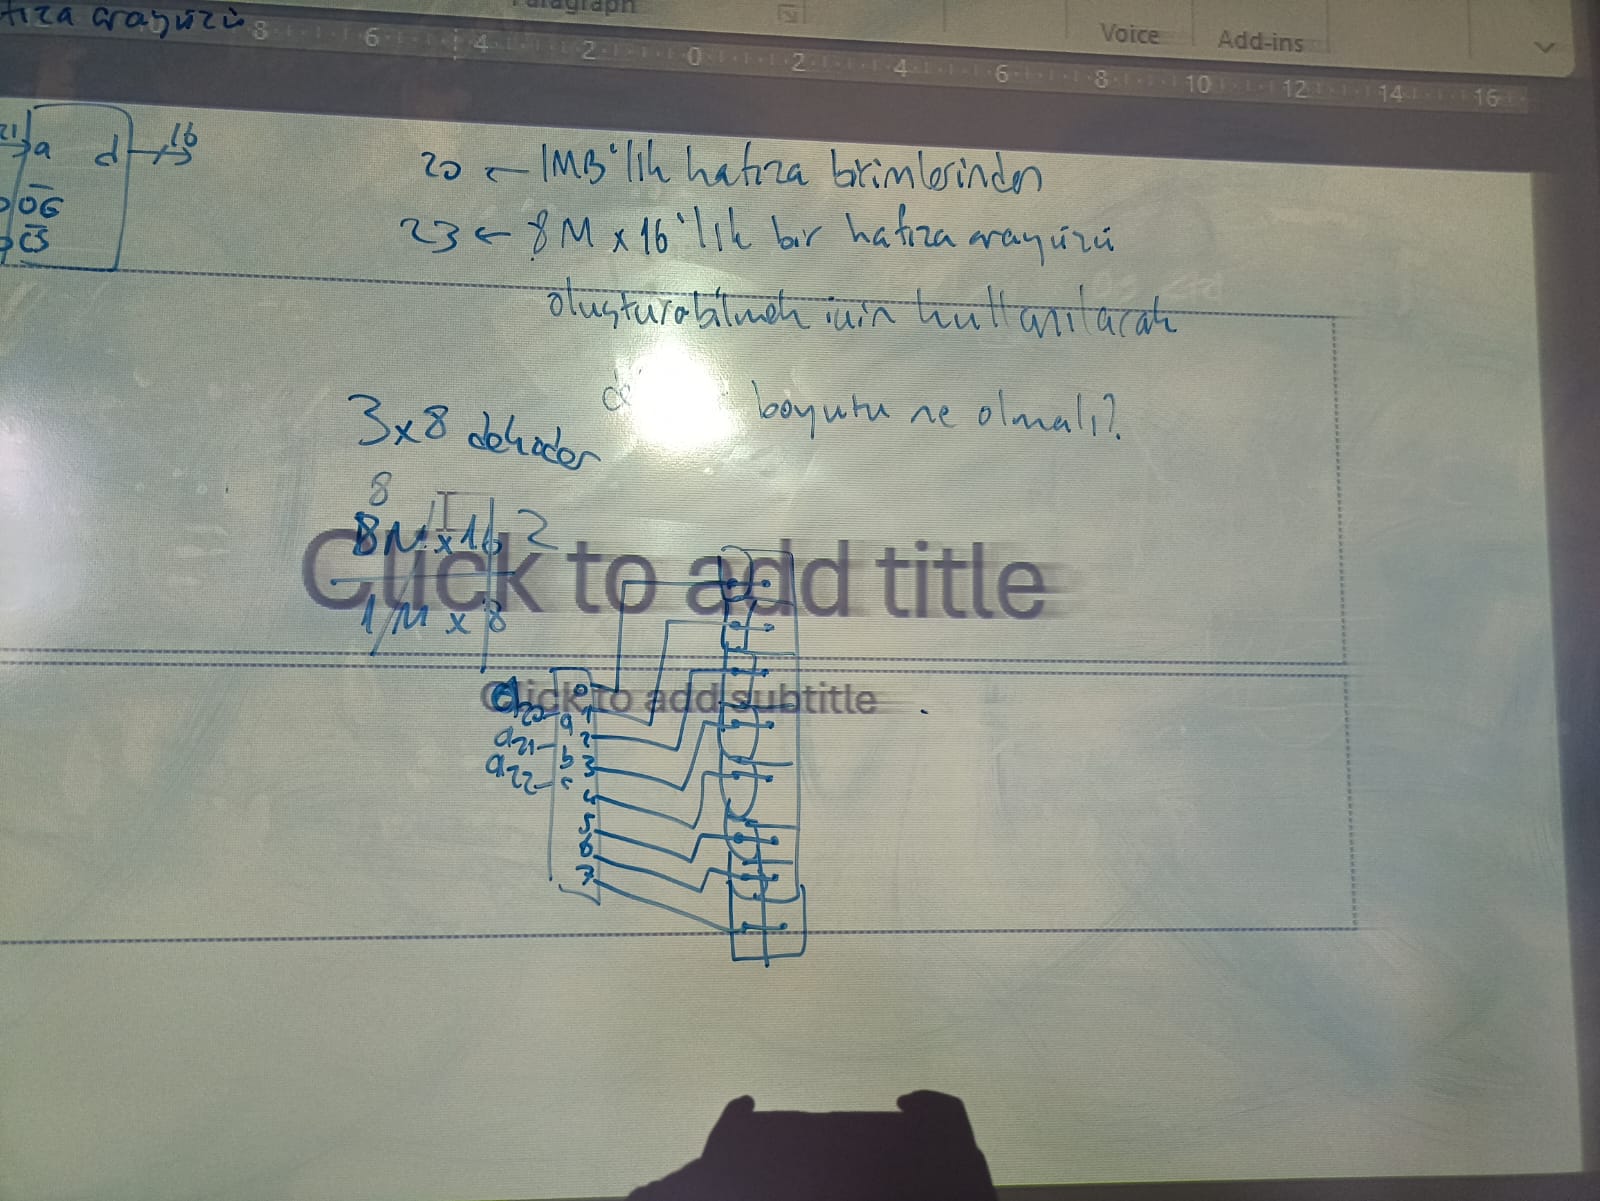 tıza arayüzü
Paragraph
Voice
Add-ins
8 6 4 2 0 2 4 6 8 10 12 14 16
21 a d 16
OE
CS
20 ← 1MB'lık hafıza birimlerinden
23 ← 8M x 16'lık bir hafıza arayüzü
oluşturabilmek için kullanılacak
boyutu ne olmalı?
3x8 dekoder
8
8M x 16 2
Click to add title
1M x 8
Click to add subtitle
a20 a
a21 b
a22 c
0
1
2
3
4
5
6
7